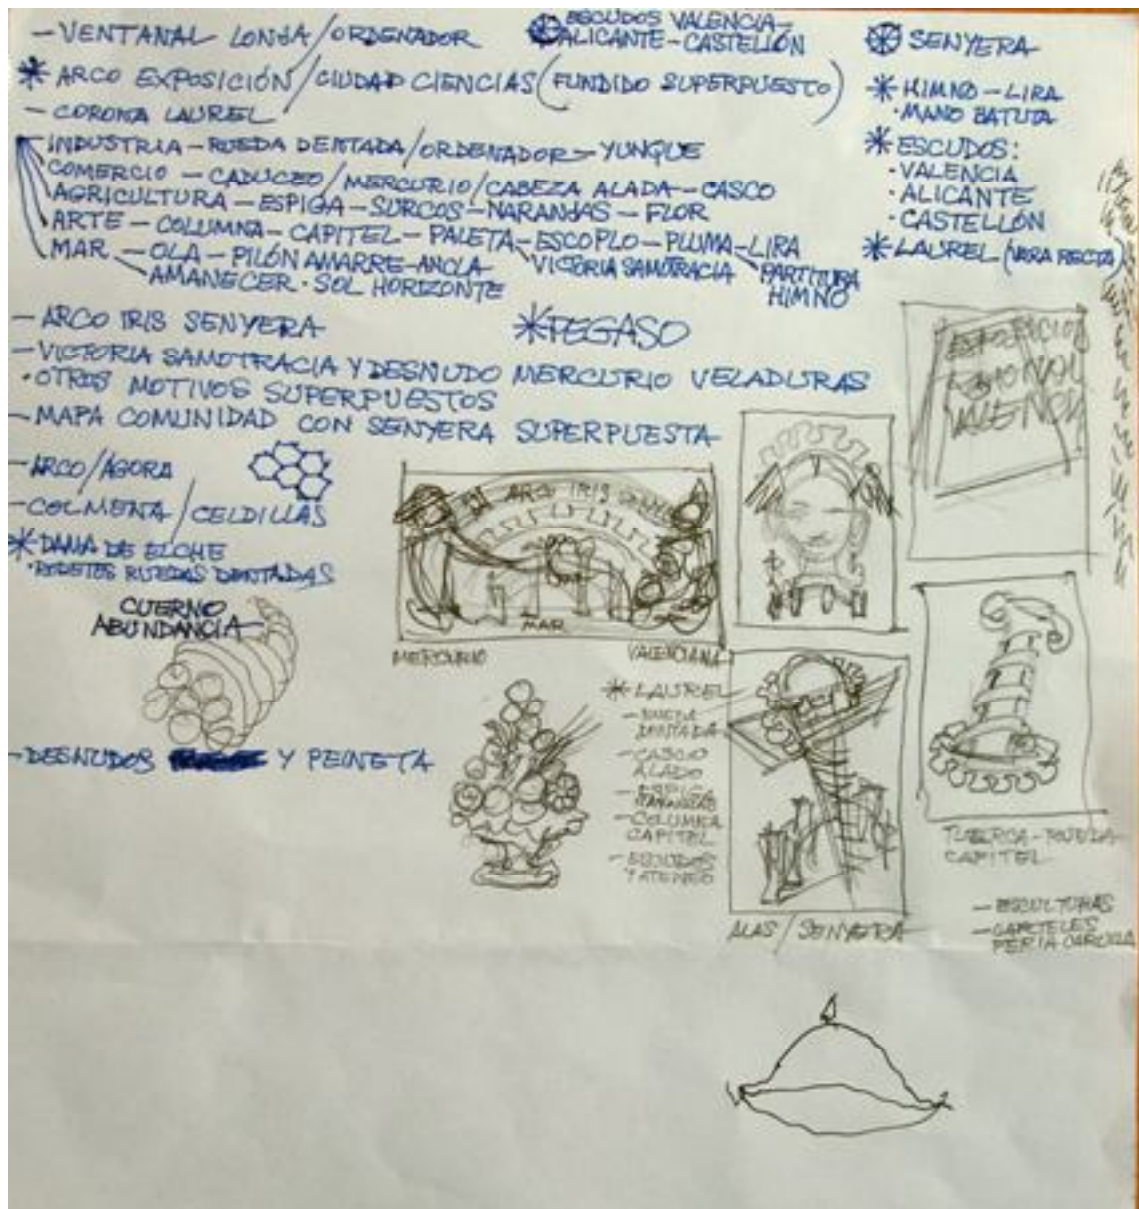 - VENTANAL LONJA/ORDENADOR
ESCUDOS VALENCIA-
ALICANTE-CASTELLÓN
SENYERA
* ARCO EXPOSICIÓN/CIUDAD CIENCIAS (FUNDIDO SUPERPUESTO)
- CORONA LAUREL
* HIMNO - LIRA
· MANO BATUTA
INDUSTRIA - RUEDA DENTADA/ORDENADOR - YUNQUE
COMERCIO - CADUCEO/MERCURIO/CABEZA ALADA - CASCO
AGRICULTURA - ESPIGA - SURCOS - NARANJAS - FLOR
ARTE - COLUMNA - CAPITEL - PALETA - ESCOPLO - PLUMA - LIRA
VICTORIA SAMOTRACIA
PARTITURA
HIMNO
MAR - OLA - PILÓN AMARRE - ANCLA
AMANECER · SOL HORIZONTE
* ESCUDOS:
· VALENCIA
· ALICANTE
· CASTELLÓN
* LAUREL (VARA RECTA)
- ARCO IRIS SENYERA
* PEGASO
- VICTORIA SAMOTRACIA Y DESNUDO MERCURIO VELADURAS
· OTROS MOTIVOS SUPERPUESTOS
- MAPA COMUNIDAD CON SENYERA SUPERPUESTA
- ARCO/ÁGORA
- COLMENA/CELDILLAS
* DAMA DE ELCHE
· RODETES RUEDAS DENTADAS
CUERNO
ABUNDANCIA
- DESNUDOS Y PEINETA
EXPOSICION
ARCO IRIS
MAR
MERCURIO
VALENCIANA
* LAUREL
- RUEDA
DENTADA
- CASCO
ALADO
- ESPIGA
NARANJAS
- COLUMNA
CAPITEL
- ESCUDOS
Y ATENEO
ALAS/SENYERA
TUERCA-RUEDA
CAPITEL
- ESCULTURAS
- CARTELES
FERIA